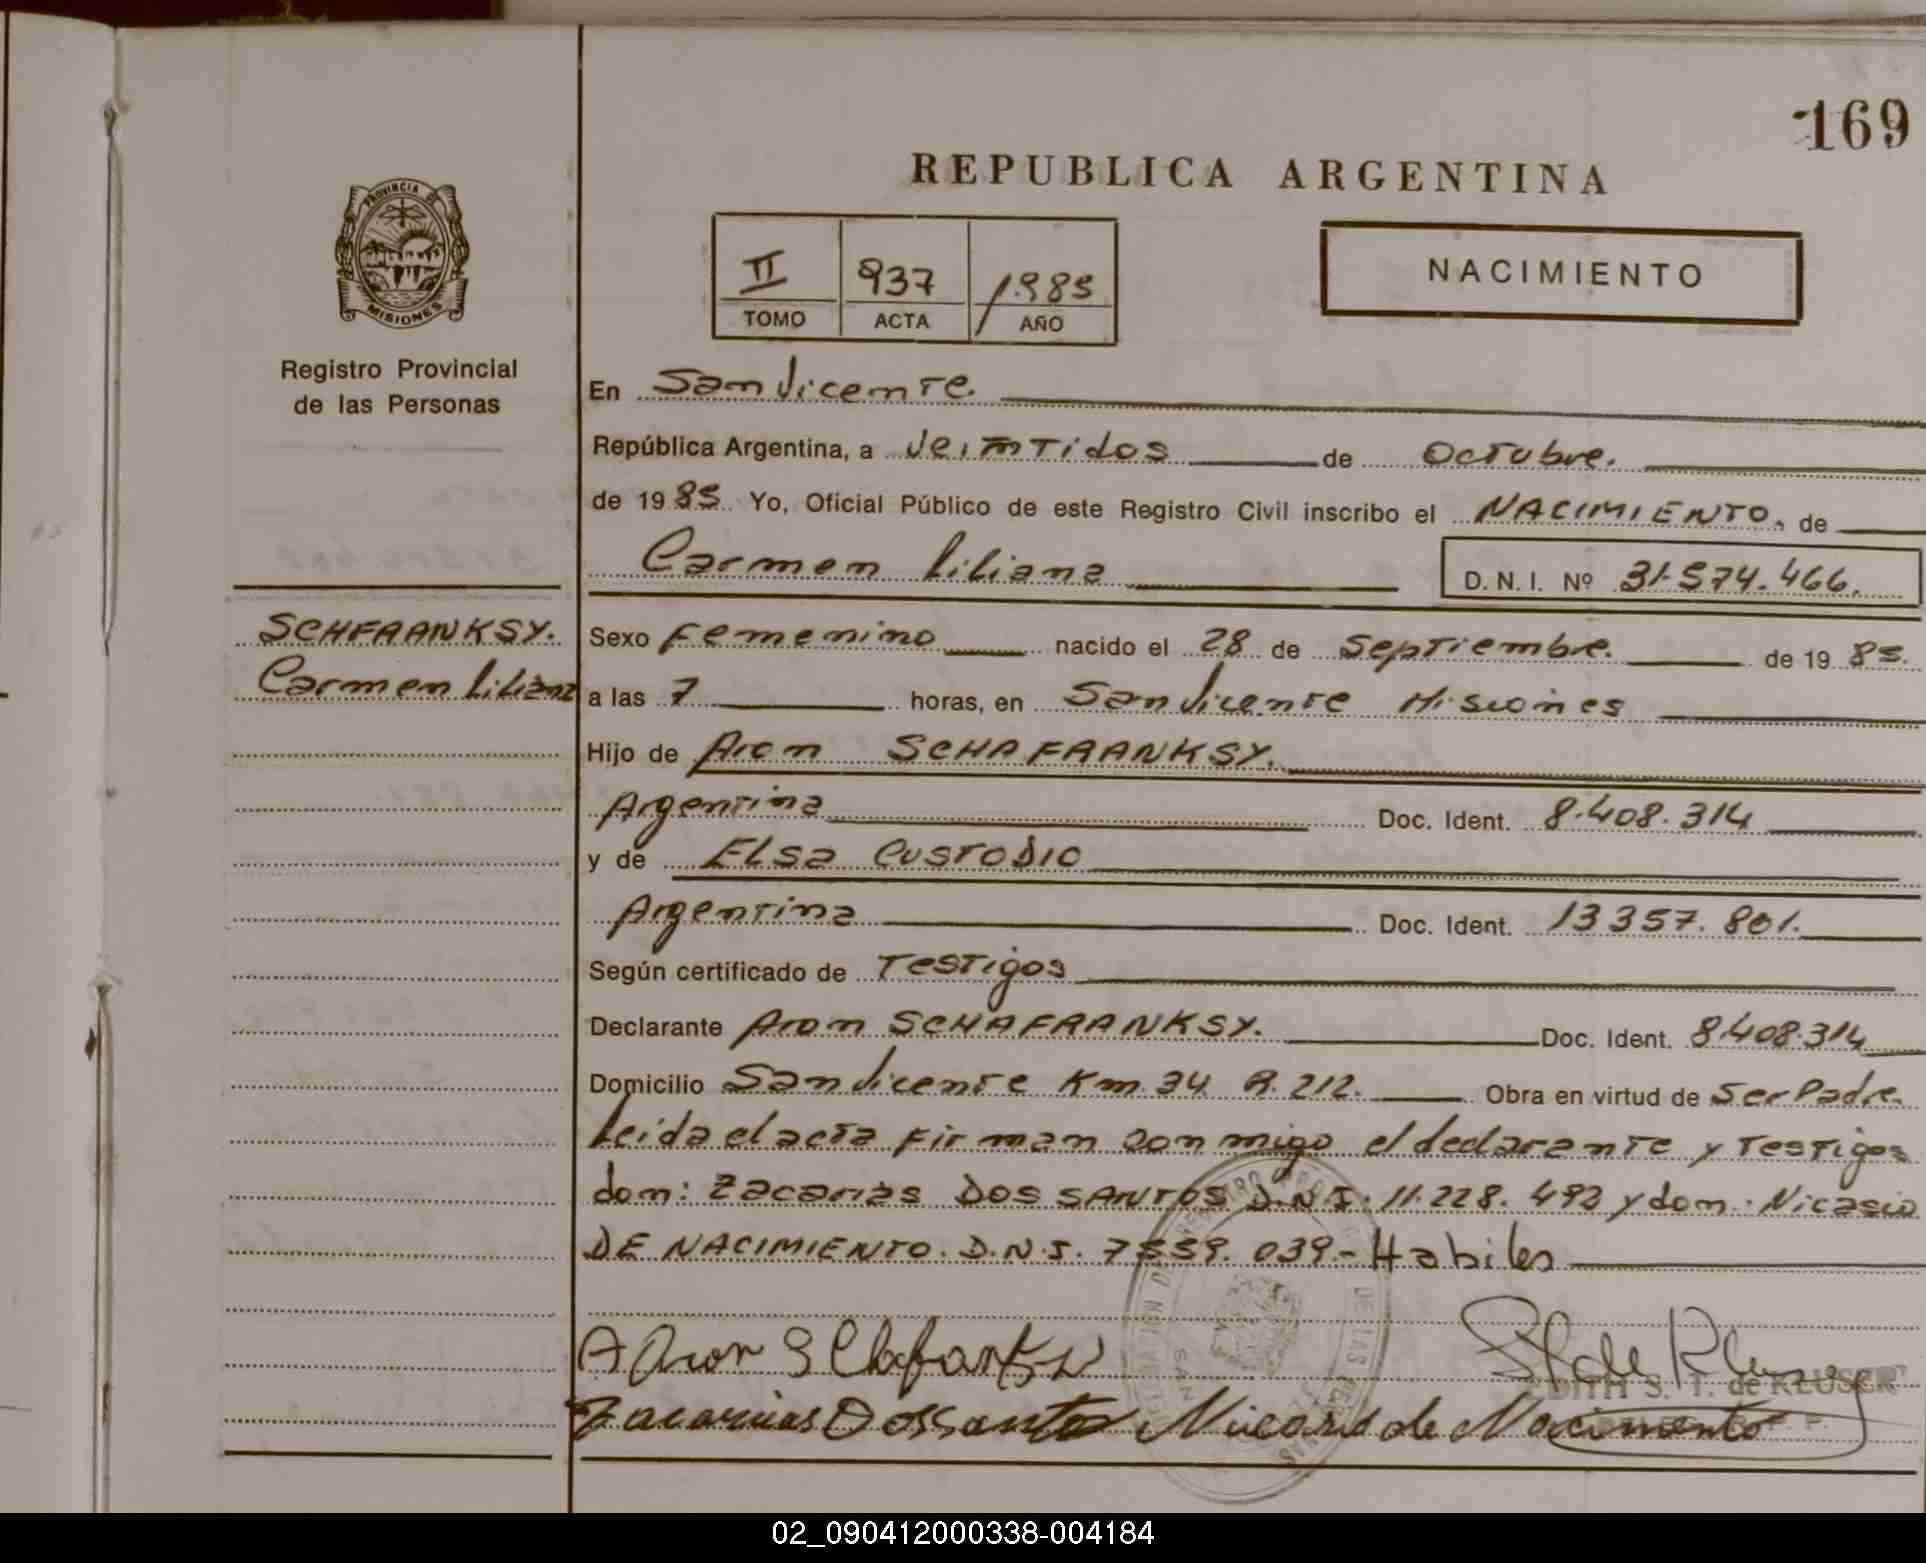 169
REPUBLICA ARGENTINA
PROVINCIA DE
MISIONES
Registro Provincial
de las Personas
II 937 1985
TOMO ACTA AÑO
NACIMIENTO
En San Vicente.
República Argentina, a Veintidos de Octubre.
de 1985. Yo, Oficial Público de este Registro Civil inscribo el NACIMIENTO. de
Carmen Liliana D. N. I. Nº 31.574.466.
SCHFAANKSY.
Carmen Liliana
Sexo Femenino nacido el 28 de Septiembre. de 1985.
a las 7 horas, en San Vicente Misiones
Hijo de Aron SCHAFAANKSY.
Argentina Doc. Ident. 8.408.314
y de ELsa CUSTODIO
Argentina Doc. Ident. 13357.801.
Según certificado de Testigos
Declarante Aron SCHAFRANKSY. Doc. Ident. 8.408.314
Domicilio San Vicente Km. 34 R. 212. Obra en virtud de Ser Padre.
Leida el acta firman conmigo el declarante y Testigos
don: Zacarias DOS SANTOS D.N.I. 11.228.492 y don: Nicasio
DE NACIMIENTO. D.N.I. 7559.039.- Habiles
EDITH S. T. de KLUSER
Zacarias Dos Santos
de Nacimento
02_090412000338-004184